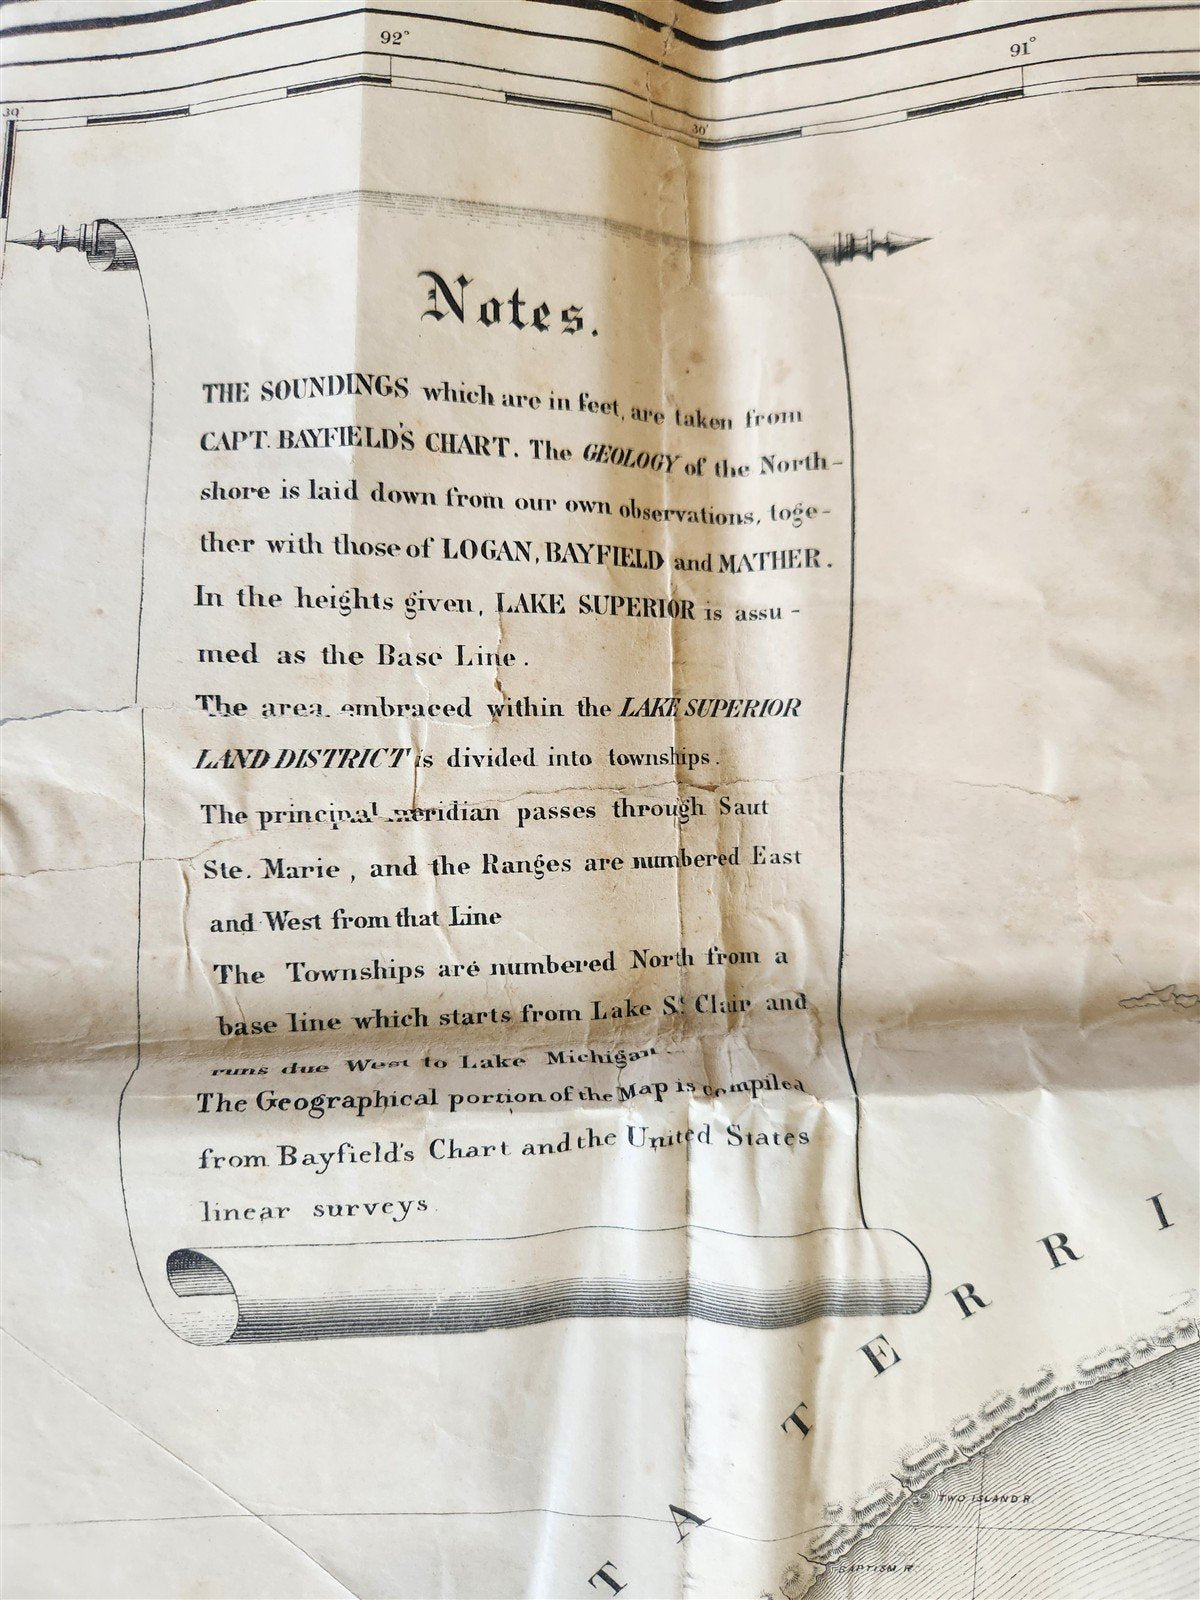 92°
91°
30'
30'
Notes.
THE SOUNDINGS which are in feet, are taken from
CAPT. BAYFIELD'S CHART. The GEOLOGY of the North-
shore is laid down from our own observations, toge-
ther with those of LOGAN, BAYFIELD and MATHER.
In the heights given, LAKE SUPERIOR is assu-
med as the Base Line.
The area embraced within the LAKE SUPERIOR
LAND DISTRICT is divided into townships.
The principal meridian passes through Saut
Ste. Marie, and the Ranges are numbered East
and West from that Line
The Townships are numbered North from a
base line which starts from Lake St. Clair and
runs due West to Lake Michigan
The Geographical portion of the Map is compiled
from Bayfield's Chart and the United States
linear surveys.
TA TERRI
TWO ISLAND R.
BAPTISM R.